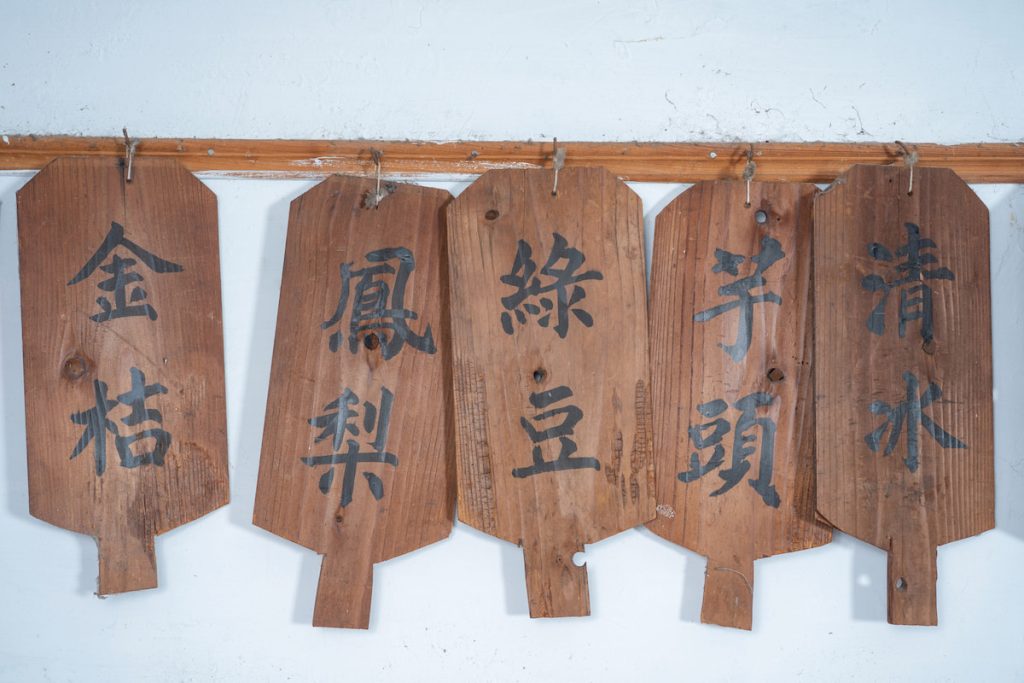 金桔
鳳梨
綠豆
芋頭
清冰